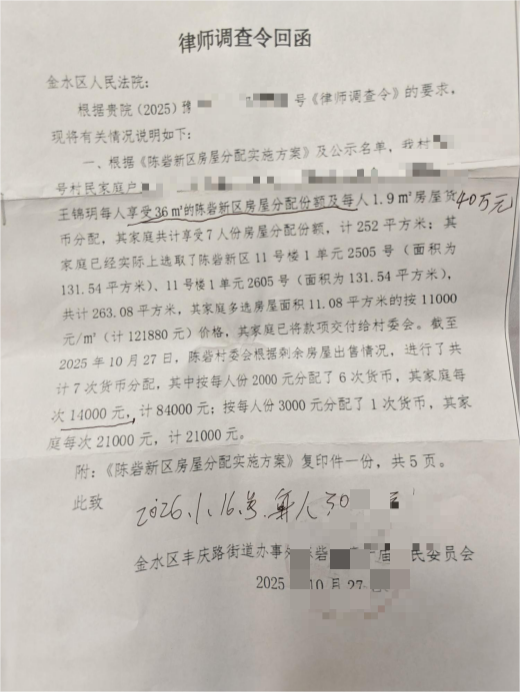 律师调查令回函
金水区人民法院:
根据贵院(2025)豫 号《律师调查令》的要求,
现将有关情况说明如下:
一、根据《陈砦新区房屋分配实施方案》及公示名单,我村
号村民家庭户
王锦玥每人享受36㎡的陈砦新区房屋分配份额及每人1.9㎡房屋货 40万元
币分配,其家庭共计享受7人份房屋分配份额,计252平方米;其
家庭已经实际上选取了陈砦新区11号楼1单元2505号(面积为
131.54平方米)、11号楼1单元2605号(面积为131.54平方米),
共计263.08平方米,其家庭多选房屋面积11.08平方米的按11000
元/㎡(计121880元)价格,其家庭已将款项交付给村委会。截至
2025年10月27日,陈砦村委会根据剩余房屋出售情况,进行了共
计7次货币分配,其中按每人份2000元分配了6次货币,其家庭每
次14000元,计84000元;按每人份3000元分配了1次货币,其家
庭每次21000元,计21000元。
附:《陈砦新区房屋分配实施方案》复印件一份,共5页。
此致
2026.1.16号.每人30
金水区丰庆路街道办事 砦 届 民委员会
2025 10月27